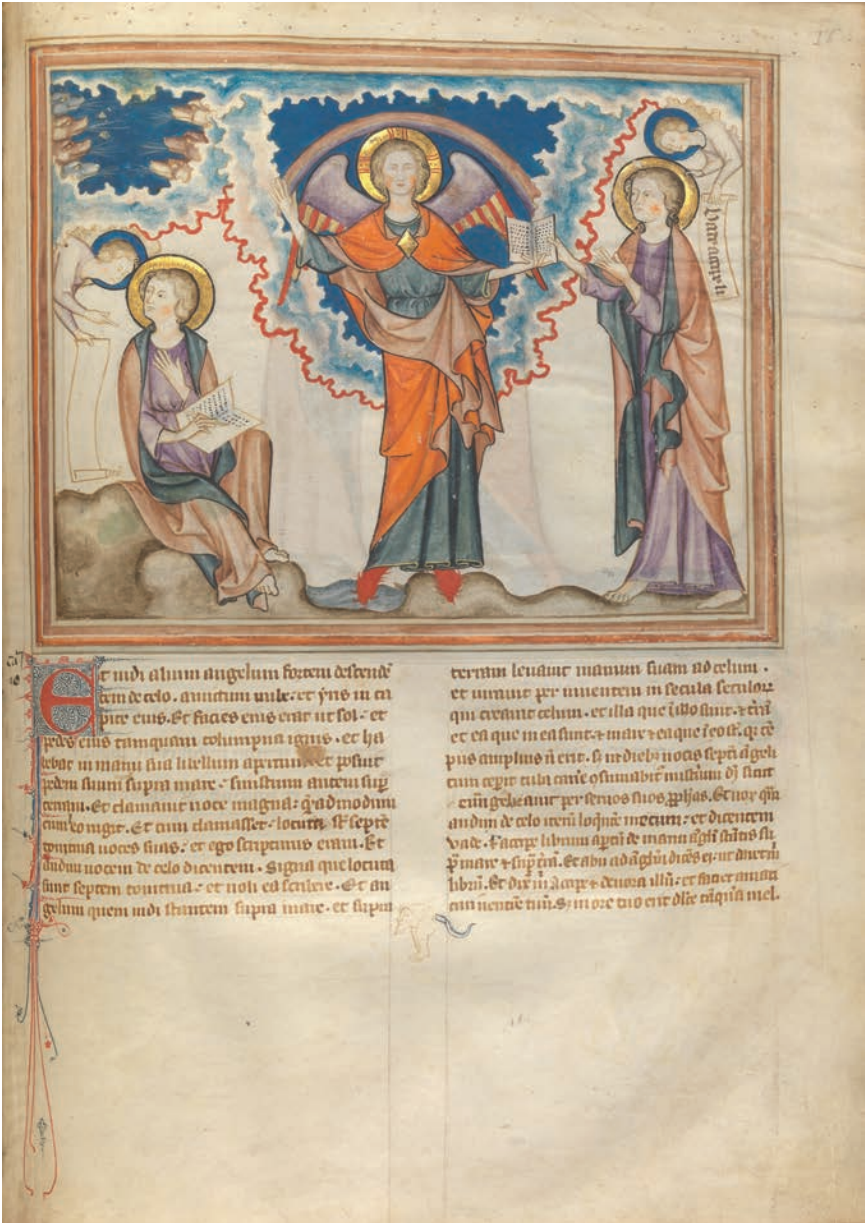 Vade accipe li
Et vidi alium angelum fortem descende
tem de celo. amictum nube. et yris in ca
pite eius. Et facies eius erat ut sol. et
pedes eius tamquam columpna ignis. et ha
bebat in manu sua libellum apertum. et posuit
pedem suum supra mare. sinistrum autem sup
terram. Et clamauit uoce magna. qadmodum
cum leo rugit. Et cum clamasset. locuta st septe
tonitrua uoces suas. et ego scripturus eram. Et
audiui uocem de celo dicentem. Signa que locuta
sunt septem tonitrua. et noli ea scribere. Et an
gelum quem uidi stantem supra mare. et supra
terram leuauit manum suam ad celum.
et iurauit per uiuentem in secula seculor
qui creauit celum. et illa que i illo sunt. et tram
et ea que in ea sunt. et mare et ea que i eo st. q te
pus amplius n erit. s in dieb uocis septi angeli
cum ceperit tuba cane osumabit misterium di sicut
euangelizauit per seruos suos pphas. Et uox qm
audiui de celo iteru loquete mecum. et dicentem
Vade. et accipe librum aptu de manu agli statis su
p mare et sup tra. Et abii ad anglm dices ei. ut daret m
libru. Et dix m accipe et deuora illu. et faciet amari
cari uentre tuu. s in ore tuo erit dlce taqua mel.